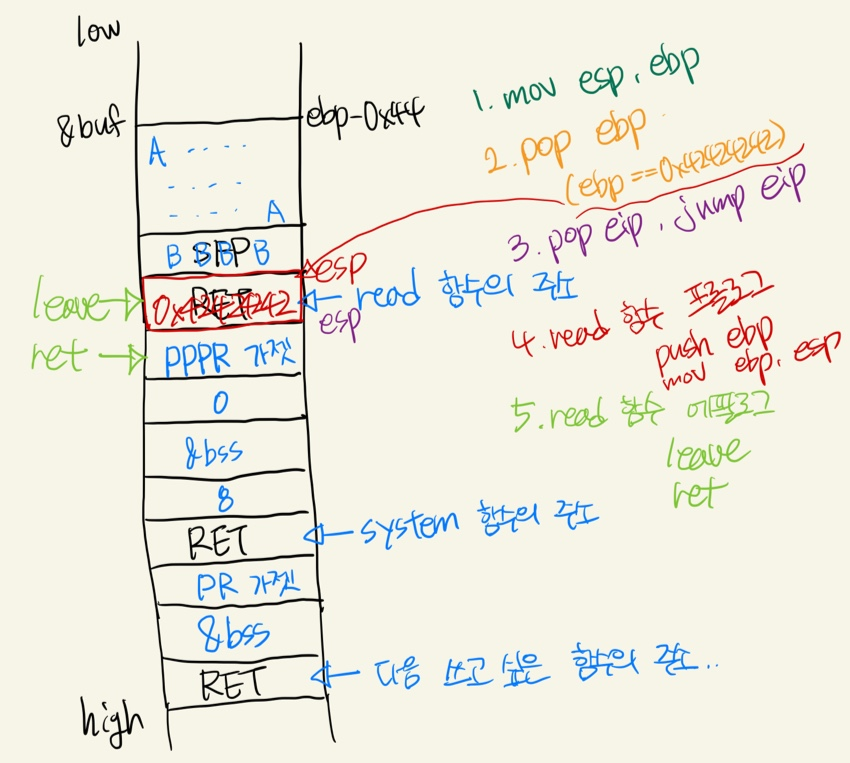 low
&buf
ebp-0x44
A ----
- --- -
- --- A
B B B B
SFP
RET
0x42424242
leave
ret
esp
esp
read 함수의 주소
PPPR 가젯
0
&bss
8
RET
system 함수의 주소
PR 가젯
&bss
RET
다음 쓰고 싶은 함수의 주소..
high
1. mov esp, ebp
2. pop ebp
(ebp ==0x42424242)
3. pop eip, jump eip
4. read 함수 프롤로그
push ebp
mov ebp, esp
5. read 함수 에필로그
leave
ret